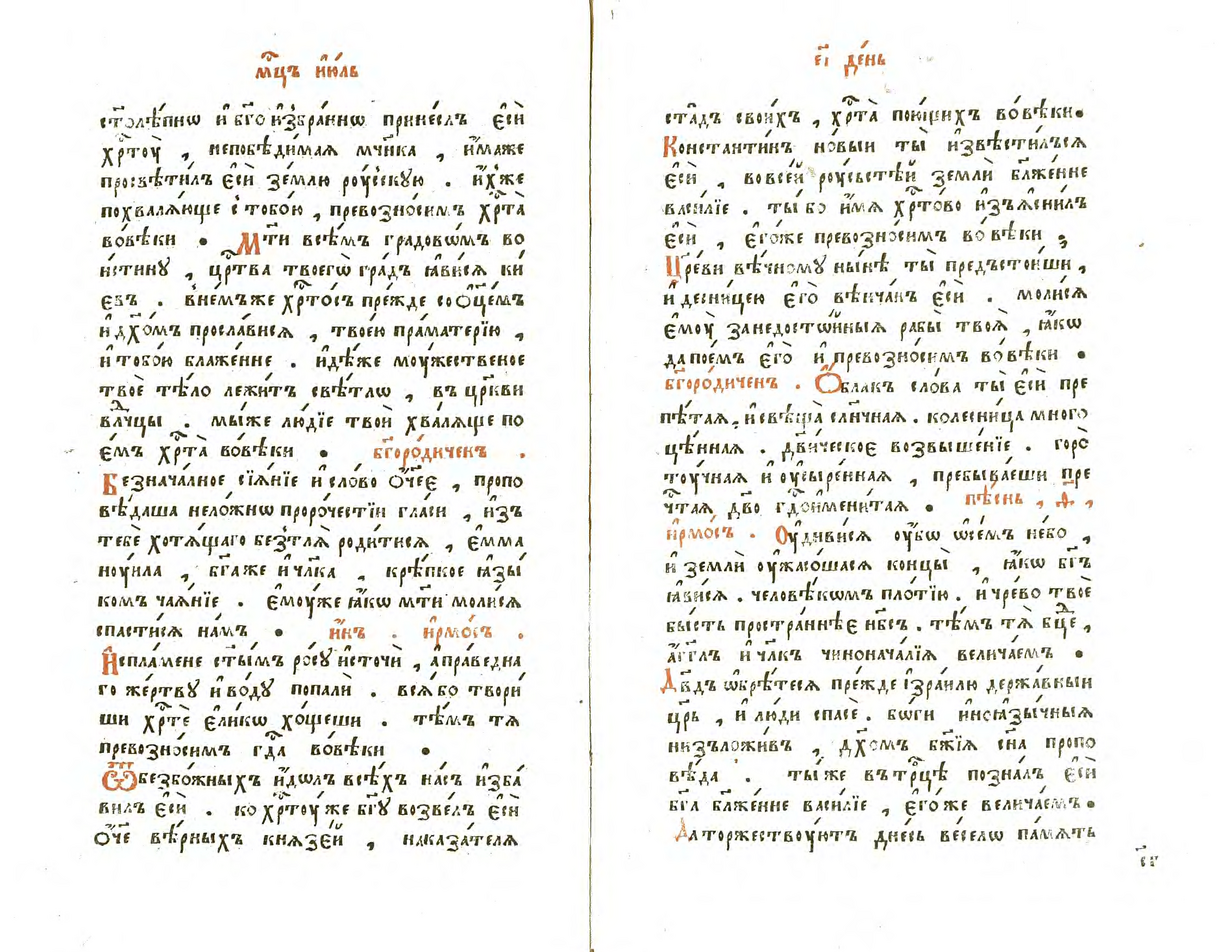 мⷭ҇цъ і҆ю́ль
ст҃олѣ́пнѡ и҆ б҃гои҆збра́ннѡ прине́слъ є҆сѝ
хрⷭ҇тоу̀ , непобѣди́мая мч҃нка , и҆́маже
просвѣти́лъ є҆сѝ зе́млю роу́сскую . и҆́хже
похваля́юще с̾ тобо́ю , превозно́симъ хрⷭ҇та̀
во́вѣки • Мт҃и всѣ́мъ градовѡ́мъ во
и́стину , црⷭ҇тва твоегѡ̀ гра́дъ ꙗ҆ви́ся ки
евъ . в̾не́мъже хрⷭ҇то́съ пре́жде соо҆ц҃е́мъ
и҆ дх҃омъ просла́вися , твоею пра́матерїю ,
и҆ тобо́ю блаже́нне . и҆дѣ́же моу́жественое
твоѐ тѣ́ло лежи́тъ свѣ́тлѡ , въ цр҃кви
влⷣчцы . мы́же лю́дїе твоѝ хваля́ще по
е́мъ хрⷭ҇та̀ во́вѣки • бг҃оро́диченъ .
Безнача́лное сїя́нїе и҆ сло́во ѻ҆́ч҃ее , пропо
вѣ́даша нело́жнѡ проро́честїи гла́си , и҆зъ
тебѐ хотя́щаго без̾тля̀ роди́тися , є҆мма
ноуи́ла , бг҃аже и҆ чл҃ка , крѣ́пкое ꙗ҆зы́
комъ ча́янїе . є҆моу́же ꙗ҆́кѡ мт҃и моли́ся
спасти́ся на́мъ • и҆́нъ . і҆рмо́съ .
И҆спла́мене ст҃ы́мъ ро́су и҆сточѝ , а҆пра́ведна
го же́ртвꙋ и҆ во́дꙋ попалѝ . вся́бо твори́
ши хрⷭ҇тѐ є҆ли́кѡ хо́щеши . тѣ́мъ тя̀
превозно́симъ гдⷭ҇а во́вѣки •
Ѿбезбо́жныхъ и҆́дѡлъ всѣ́хъ на́съ и҆зба́
вилъ є҆сѝ . ко хрⷭ҇тоу́ же бг҃у возве́лъ є҆сѝ
ѻ҆́ч҃е вѣ́рныхъ князе́й , наказа́теля
є҃і де́нь
ста́дъ свои́хъ , хрⷭ҇та̀ пою́щихъ во́вѣки •
Константи́нъ но́выи ты̀ и҆звѣсти́лъся
є҆сѝ , вовсе́й роу́сьстѣй землѝ бл҃же́нне
васи́лїе . ты́ бо и҆́мя хрⷭ҇то́во и҆зъясни́лъ
є҆сѝ , є҆го́же превозно́симъ во́ вѣки ;
Цр҃еви вѣ́чному ны́нѣ ты̀ предъстои́ши ,
и҆ десни́цею є҆го̀ вѣ́нчанъ є҆сѝ . моли́ся
є҆моу̀ занедостѡ́йныя рабы̀ твоя̀ , ꙗ҆́кѡ
дапое́мъ є҆го̀ и҆ превозно́симъ во́ вѣки •
бг҃оро́диченъ . Ѻ҆́блакъ сло́ва ты̀ є҆сѝ пре
пѣ́тая , и҆ свѣща̀ слн҃чная . колесни́ца много
цѣ́нная . дв҃и́ческоє возвыше́нїе . горо̀
тоу́чная и҆ оу҆сыре́нная , пребыва́еши пре
чⷭ҇тая дв҃о гдⷭ҇ои҆мени́тая • пѣ́снь , д҃ ,
і҆рмо́съ . Оу҆диви́ся оу҆́бѡ ѡ҆се́мъ не́бо ,
и҆ землѝ оу҆жасо́шася концы̀ , ꙗ҆́кѡ бг҃ъ
ꙗ҆ви́ся . человѣ́кѡмъ пло́тїю . и҆ чре́во твоѐ
бы́сть простра́ннѣє нб҃съ . тѣ́мъ тя̀ бцⷣе ,
а҆́гг҃лъ и҆ чл҃къ чинонача́лїя велича́емъ •
Дв҃дъ ѡ҆брѣ́теся пре́жде і҆зра́илю держа́вныи
цр҃ь , и҆ лю́ди спасѐ . бѡ́ги и҆нояꙁы́чныя
низъложи́въ , дх҃омъ бж҃їя сн҃а пропо
вѣ́да . ты́ же въ трⷪ҇цѣ позна́лъ є҆сѝ
бг҃а бл҃же́нне васи́лїе , є҆го́ же велича́емъ •
Да торжествоу́ютъ дне́сь ве́селѡ па́мять